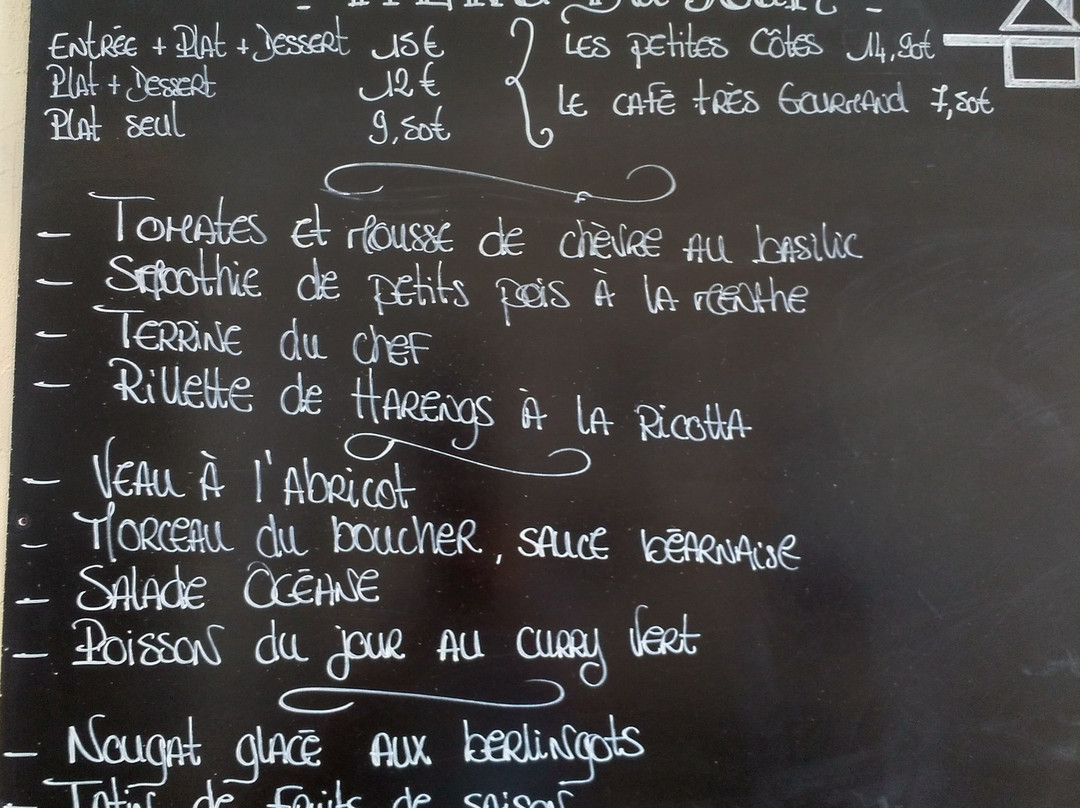 - MENU DU JOUR -
ENTRÉE + PLAT + DESSERT 15€
PLAT + DESSERT 12€
PLAT SEUL 9,50€
LES PETITES CÔTES 14,90€
LE CAFÉ TRÈS GOURMAND 7,50€
- TOMATES ET MOUSSE DE CHÈVRE AU BASILIC
- SMOOTHIE DE PETITS POIS À LA MENTHE
- TERRINE DU CHEF
- RILLETTE DE HARENGS À LA RICOTTA
- VEAU À L'ABRICOT
- MORCEAU DU BOUCHER, SAUCE BÉARNAISE
- SALADE OCÉANE
- POISSON DU JOUR AU CURRY VERT
- NOUGAT GLACÉ AUX BERLINGOTS
- TATIN DE FRUITS DE SAISON